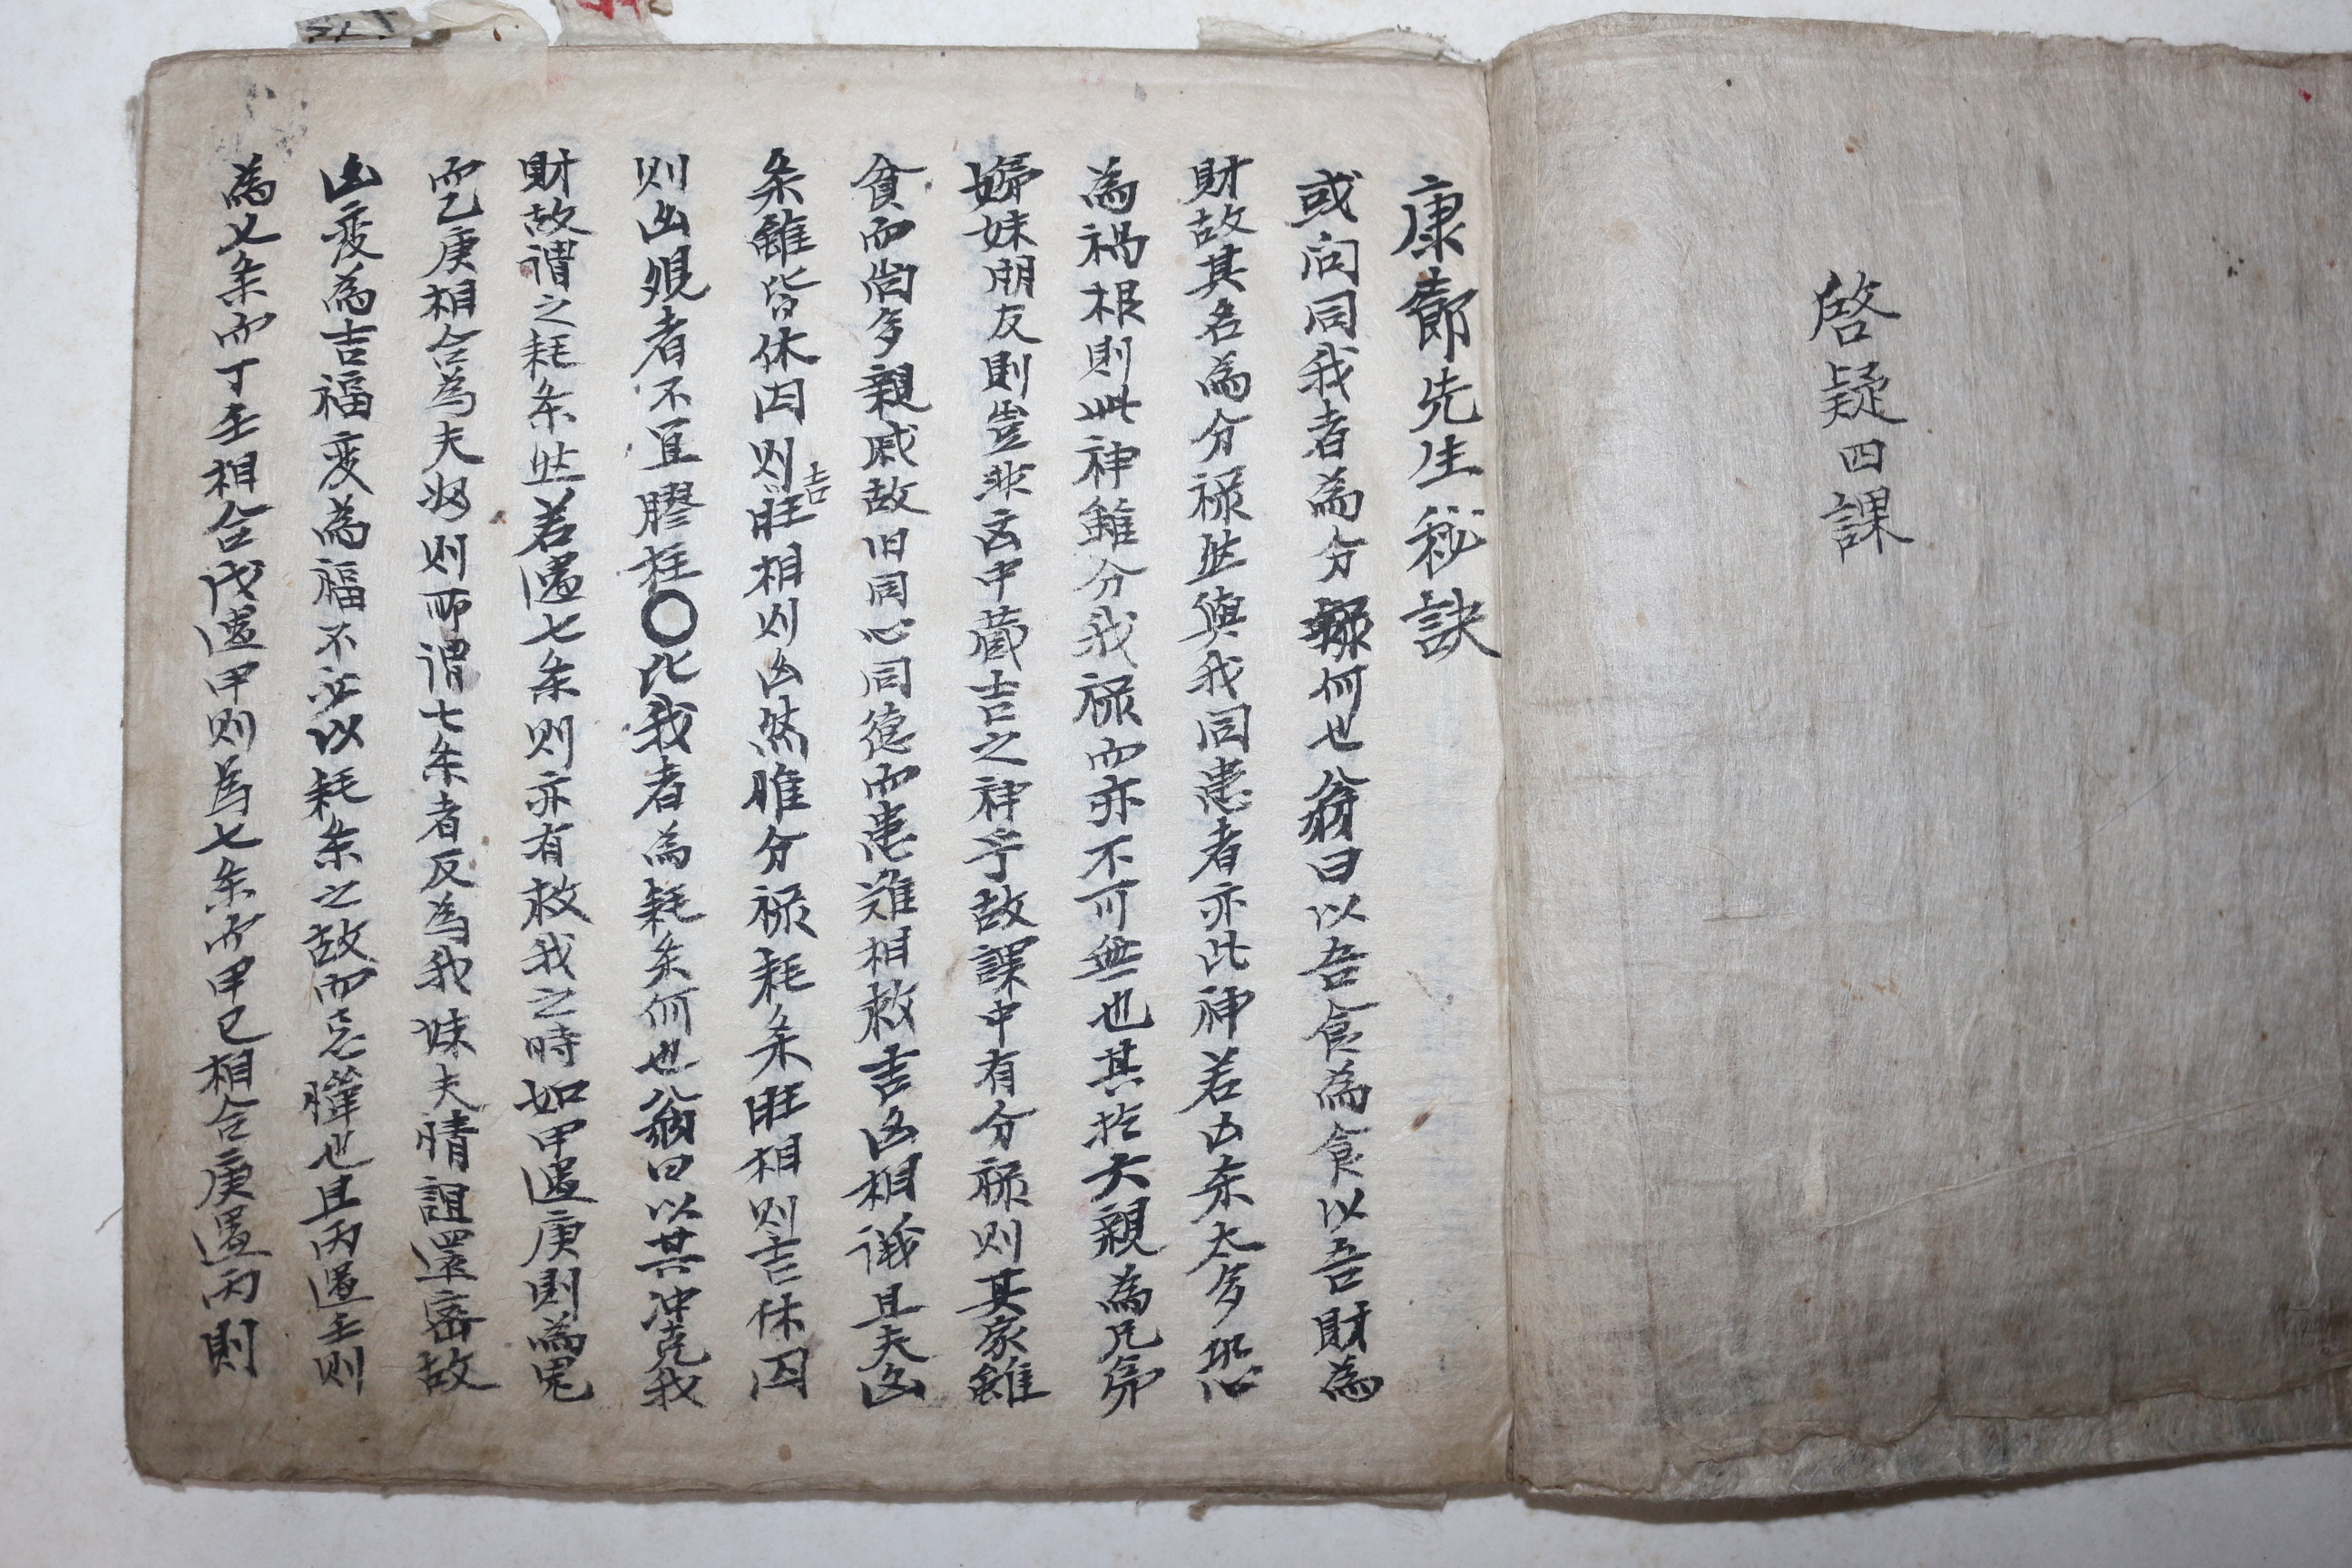 啓疑四課
康節先生秘訣
或问同我者為分祿何也翁曰以吾食為食以吾財為
財故其名為分祿然與我同患者亦此神若凶条太多恐
為禍根則此神雖分我祿而亦不可無也其於六親為兄弟
娣妹朋友則豈非凶中藏吉之神乎故課中有分祿則其家雖
貧而尚多親戚故旧同心同德而患难相救吉凶相議且夫凶
条雖皆休囚则吉旺相则凶然惟分祿耗条旺相则吉休囚
则凶覌者不宜膠柱〇比我者為耗条何也翁曰以其冲克我
財故謂之耗条然若遇七条则亦有救我之時如甲遇庚則為鬼
而乙庚相合為夫妇则所谓七条者反為我妹夫情誼還密故
凶変為吉福変為福不必以耗条之故而忌憚也且丙遇壬则
為七条而丁壬相合戊遇甲则為七条而甲己相合庚遇丙則